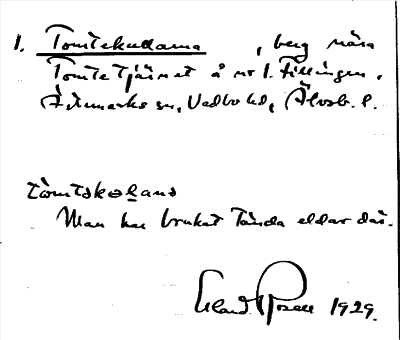 1. Tomtekullarna, berg nära
Tomtetjärnet å nr 1. Fillingen.
Ärtemarks sn, Vedbo hd, Älvsb. l.
tòmtskəl̲ans
Man har brukat tända eldar där.
Erland Rosell 1929.